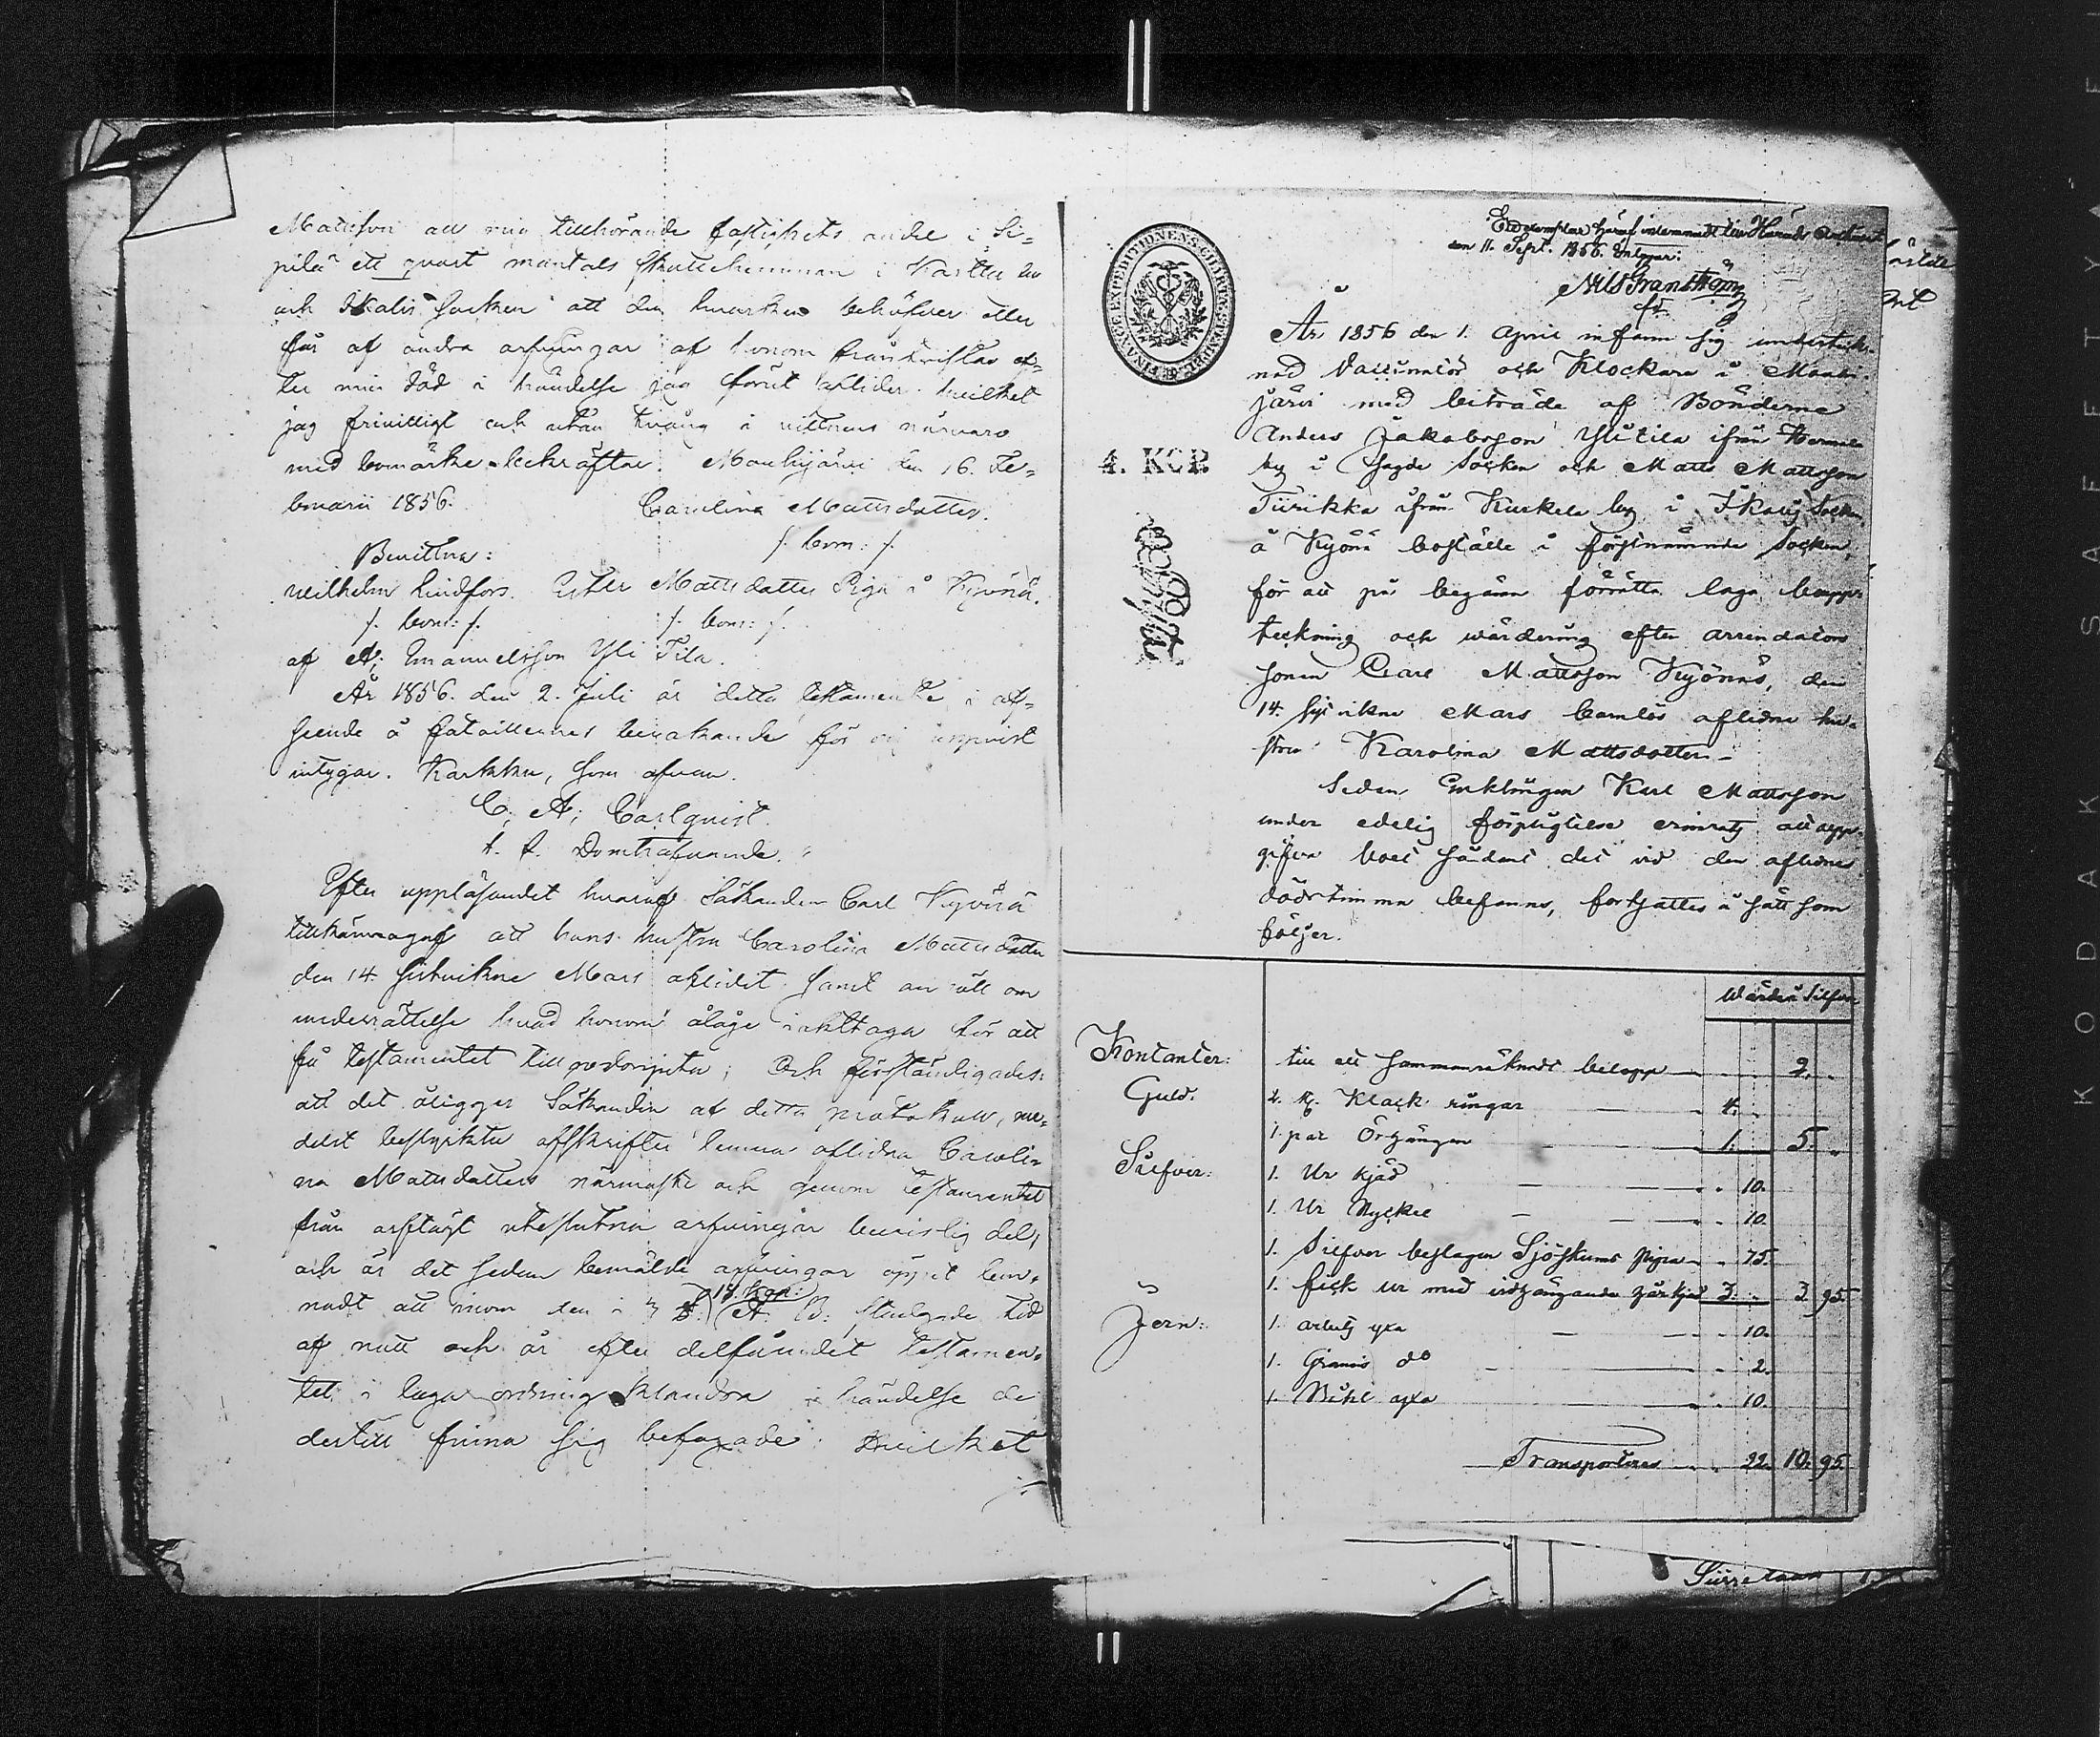 Mattsson all min tillhörande fastighets andel i Si-
pilä ett quart mantals skattehemman i Kartta by
och Ikalis Socken att den hvarken behöfver eller
får af andra arfvingar af honom fråntvistas ef-
ter min död i händelse jag förut aflider. hvilket
jag frivilligt och utan tvång i vittnens närvaro
med bomärke bekräftar. Mouhijärvi den 16. Fe-
bruarii 1856. Carolina Mattsdotter.
/. bom: /.
Bevittna:
Wilhelm Lindfors. Ester Mattsdotter Piga i Kyönä.
/. bom: /. /. bom: /.
af A: Emanuelsson Yli Tila.
År 1856. den 2. Juli är detta testamente i af-
seende å fatalliernas bevakande för mig uppvist
intygar. Karkku, som ofvan.
C: A: Carlquist.
t. f. Domhafvande.
Efter uppläsandet hvaraf Sökanden Carl Kyönä
tillkännagaf att hans hustru Carolina Mattsdotter
den 14 sistvikne Mars aflidit samt anhöll om
underrättelse hvad honom ålåge iakttaga för att
få testamentet till godonjuta; Och förständigades:
att det åligger Sökanden af detta protokoll, me-
delst bestyrkta afskrifter lemna aflidna Caroli-
na Mattsdotters närmaste och genom Testamentet
från arftägt uteslutna arfvingar bevislig del,
och är det sedan bemälde arfvingar öppet lem-
nadt att inom den i 18. Kap: Ä. B. stadgade tid
af natt och år efter delfåendet testamen-
tet i laga ordning klandra i händelse de
dertill finna sig befogade. Hvilket
Ett exemplar häraf inlemnadt till Härads Archivet
den 11. Sept. 1856. Intygar:
Nils Granström
År 1856 den 1. April infann sig underteck-
nad Vaccinatör och Klockare i Mouhi-
järvi med biträde af Bönderne
Anders Jakobsson Ylitila ifrån
by i sagde Socken och Matts Mattsson
Tiirikka ifrån Kurkela by i Ikalis Socken
å Kyönä boställe i förstnämnde Socken,
för att på begäran förrätta laga bouppr
teckning och wärdering efter arrendators
sonen Carl Mattsson Kyönäs, den
14. sistvikne Mars barnlös aflidne hu-
stru Karolina Mattsdotter.
Sedan Enklingen Karl Mattsson
under edelig förpligtelse erinrats att upp-
gifva boet sådant det vid den aflidnes
dödstimma befanns, fortsattes å sätt som
följer.
FINANCE EXPEDITIONENS CHARTÆ STÄMPEL
4. KOP.
Wärde i Silfver
Kontanter: till ett sammanräknadt belopp 2.
Guld: 2. st. Klack ringar 4.
1. par Örhängen 1. 5.
Silfver: 1. Ur kjäd 10.
1. Ur Nyckel 10.
1. Silfver beslagen Sjöskums pipa 75.
1. fick ur med vidhängande järkjäd 3. 3. 95.
Jern: 1. arbets yxa 10.
1. do 2.
1. Bihl yxa 10.
Transporteras 22. 10. 95.
KODAK SAFETY